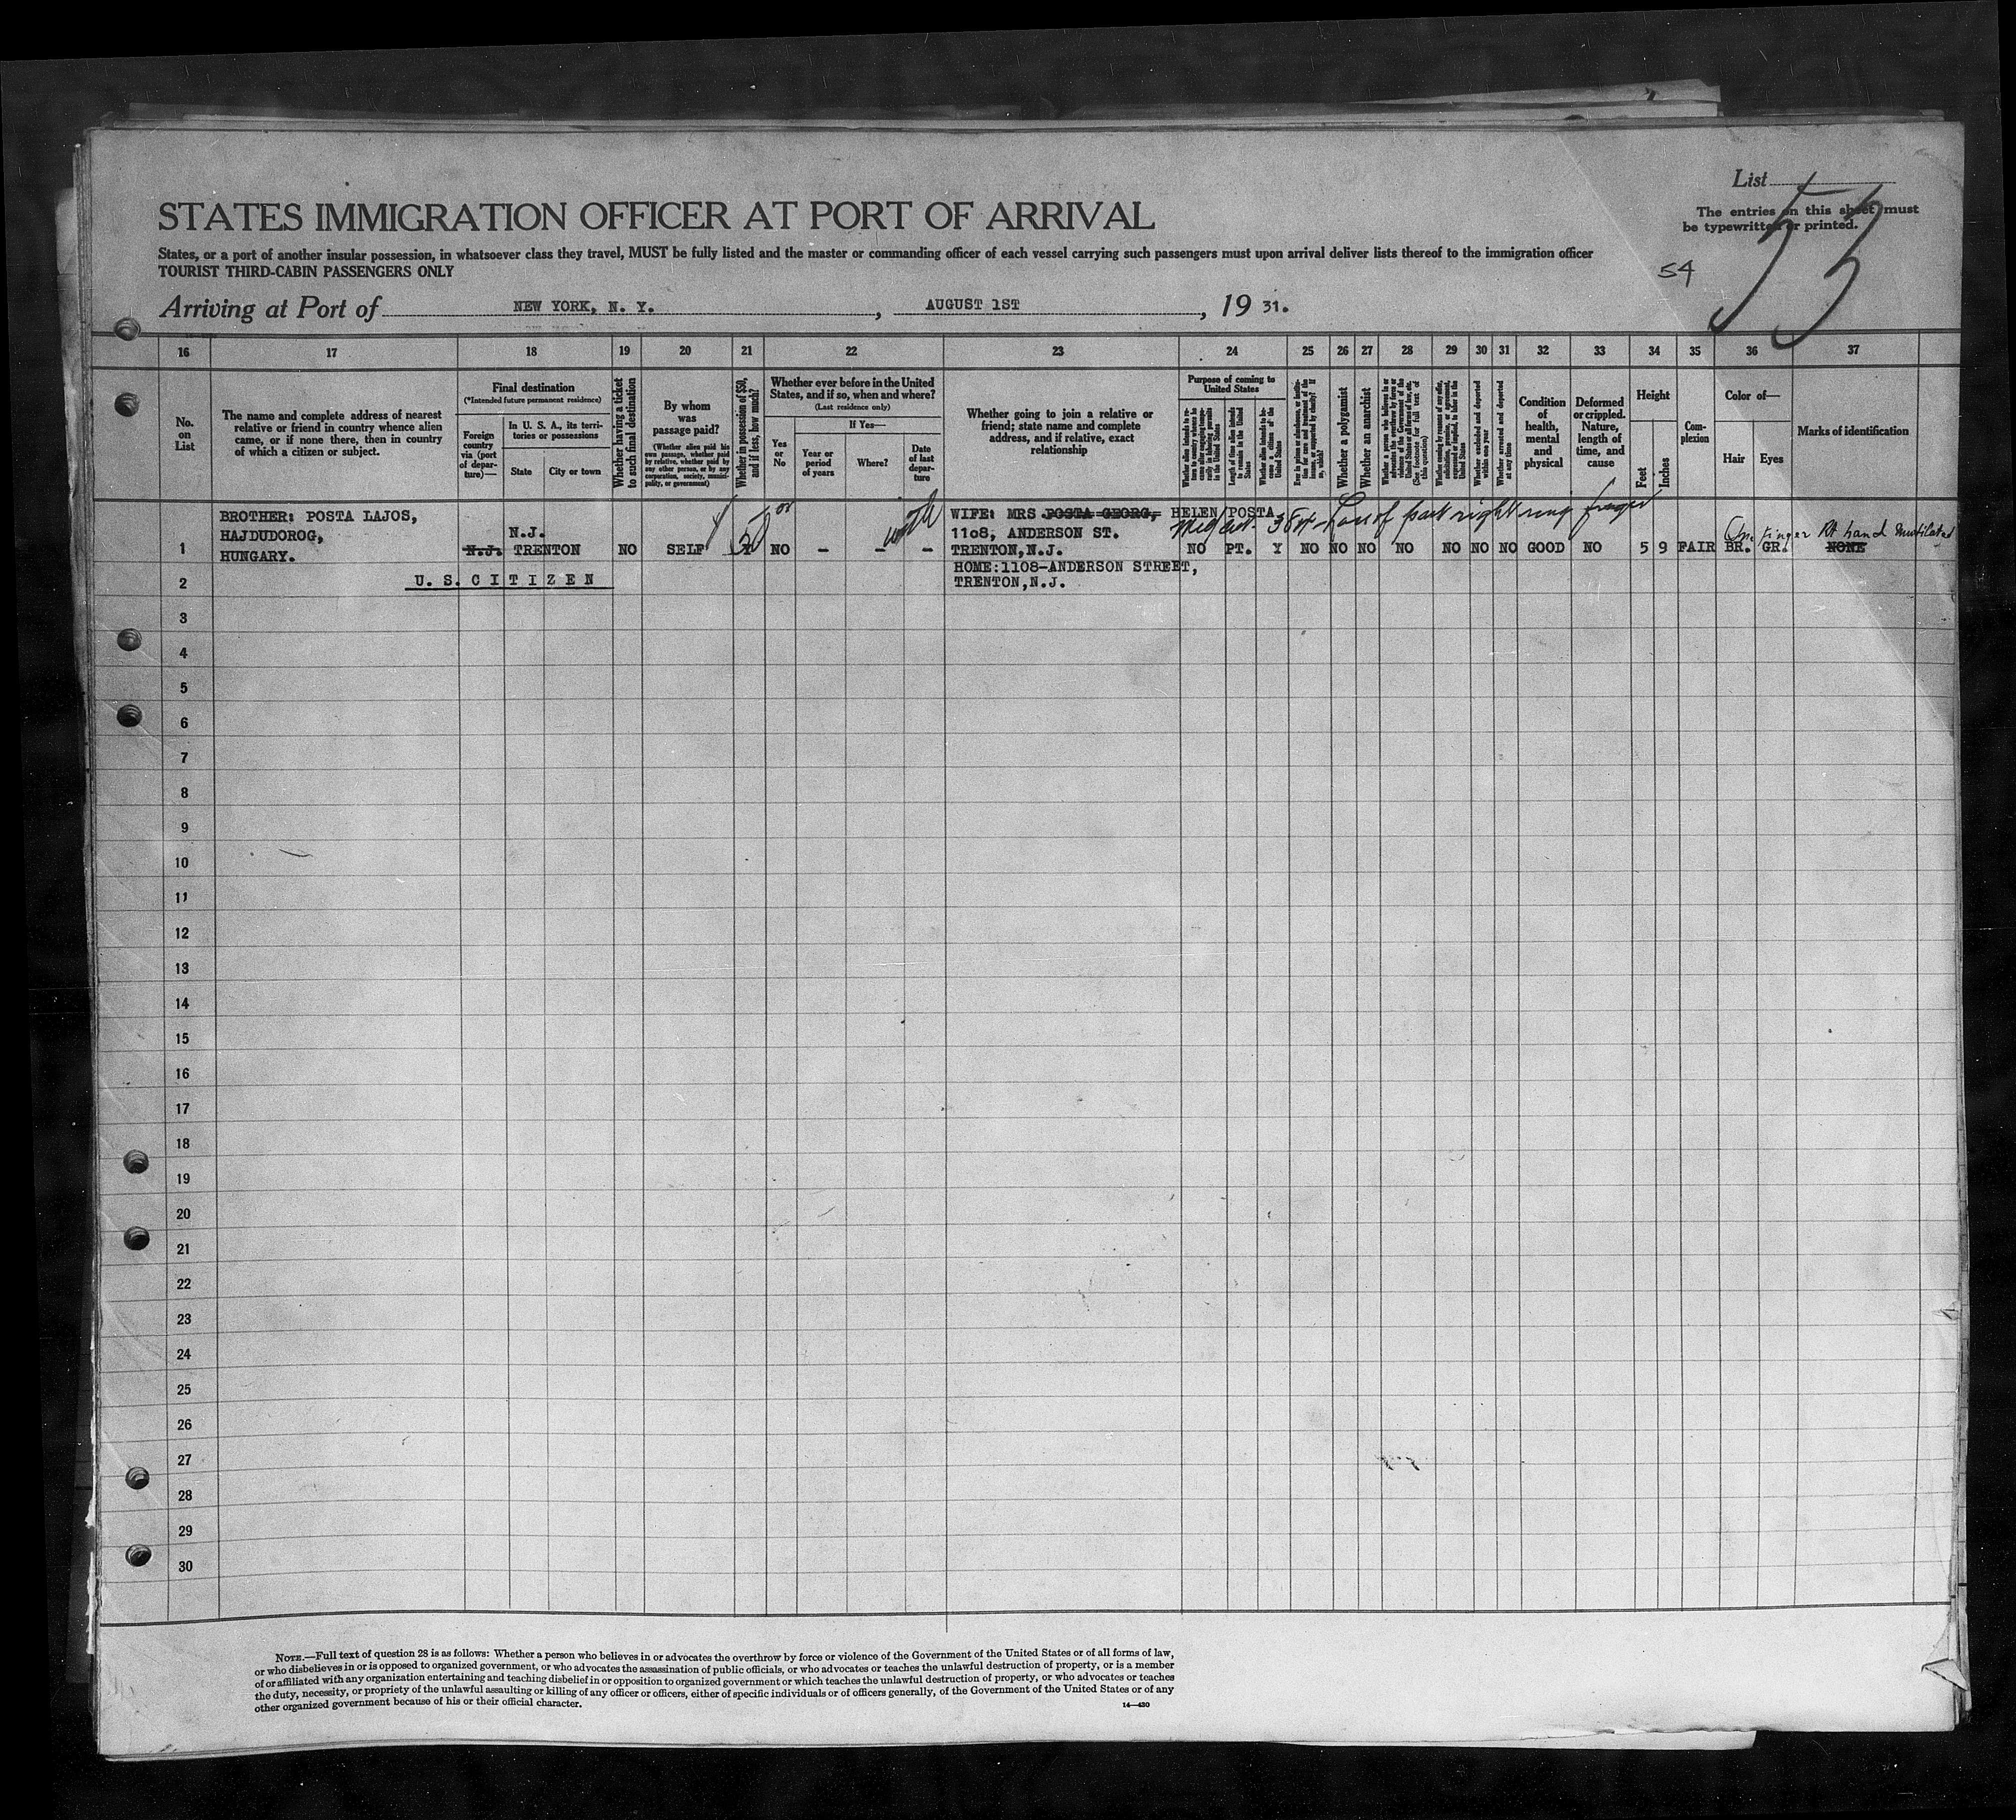 List
The entries on this sheet must
be typewritten or printed.
55
54
STATES IMMIGRATION OFFICER AT PORT OF ARRIVAL
States, or a port of another insular possession, in whatsoever class they travel, MUST be fully listed and the master or commanding officer of each vessel carrying such passengers must upon arrival deliver lists thereof to the immigration officer
TOURIST THIRD-CABIN PASSENGERS ONLY
Arriving at Port of NEW YORK, N. Y. , AUGUST 1ST , 19 31.
16 17 18 19 20 21 22 23 24 25 26 27 28 29 30 31 32 33 34 35 36 37
No.
on
List
The name and complete address of nearest
relative or friend in country whence alien
came, or if none there, then in country
of which a citizen or subject.
Final destination
(*Intended future permanent residence)
Foreign
country
via (port
of depar-
ture)—
In U. S. A., its terri-
tories or possessions
State
City or town
Whether having a ticket
to such final destination
By whom
was
passage paid?
(Whether alien paid his
own passage, whether paid
by relative, whether paid
by any other person, or by any
corporation, society, munici-
pality, or government)
Whether in possession of $50,
and if less, how much?
Whether ever before in the United
States, and if so, when and where?
(Last residence only)
Yes
or
No
If Yes—
Year or
period
of years
Where?
Date
of last
depar-
ture
Whether going to join a relative or
friend; state name and complete
address, and if relative, exact
relationship
Purpose of coming to
United States
Length of time alien intends
to remain in the United
States
Whether alien intends to be-
come a citizen of the
United States
Whether a polygamist
Whether an anarchist
(See footnote for full text of
this question)
Whether excluded and deported
within one year
Whether arrested and deported
at any time
Condition
of
health,
mental
and
physical
Deformed
or crippled.
Nature,
length of
time, and
cause
Height
Feet
Inches
Com-
plexion
Color of—
Hair
Eyes
Marks of identification
BROTHER: POSTA LAJOS,
HAJDUDOROG,
HUNGARY.
1 N.J. N.J. TRENTON NO SELF 50 NO – – –
WIFE: MRS POSTA GEORG, HELEN POSTA
1108, ANDERSON ST.
TRENTON,N.J.
Med cert. Loss of part right ring finger
One finger Rt hand Mutilated
NO PT. Y NO NO NO NO NO NO NO GOOD NO 5 9 FAIR BR. GR. NONE
2 U. S. C I T I Z E N
HOME:1108-ANDERSON STREET,
TRENTON,N.J.
3
4
5
6
7
8
9
10
11
12
13
14
15
16
17
18
19
20
21
22
23
24
25
26
27
28
29
30
NOTE.—Full text of question 28 is as follows: Whether a person who believes in or advocates the overthrow by force or violence of the Government of the United States or of all forms of law,
or who disbelieves in or is opposed to organized government, or who advocates the assassination of public officials, or who advocates or teaches the unlawful destruction of property, or is a member
of or affiliated with any organization entertaining and teaching disbelief in or opposition to organized government or which teaches the unlawful destruction of property, or who advocates or teaches
the duty, necessity, or propriety of the unlawful assaulting or killing of any officer or officers, either of specific individuals or of officers generally, of the Government of the United States or of any
other organized government because of his or their official character.
14—430